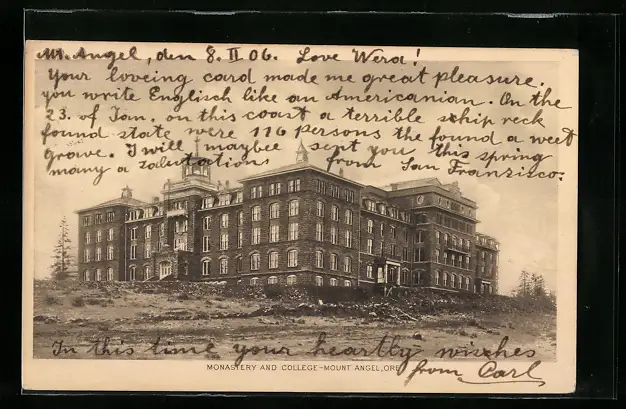 Mt. Angel, den 8. II 06. Love Werd!
Your loveing card made me great pleasure.
you write Englisch like an Americanian. On the
23. of Jan. on this coast a terrible schip reck
found state were 116 persons the found a weet
grave. I will maybee sent you this spring
many a salutation from San Franzisco.
In this time your heartly wisches
from Carl
MONASTERY AND COLLEGE-MOUNT ANGEL, ORE